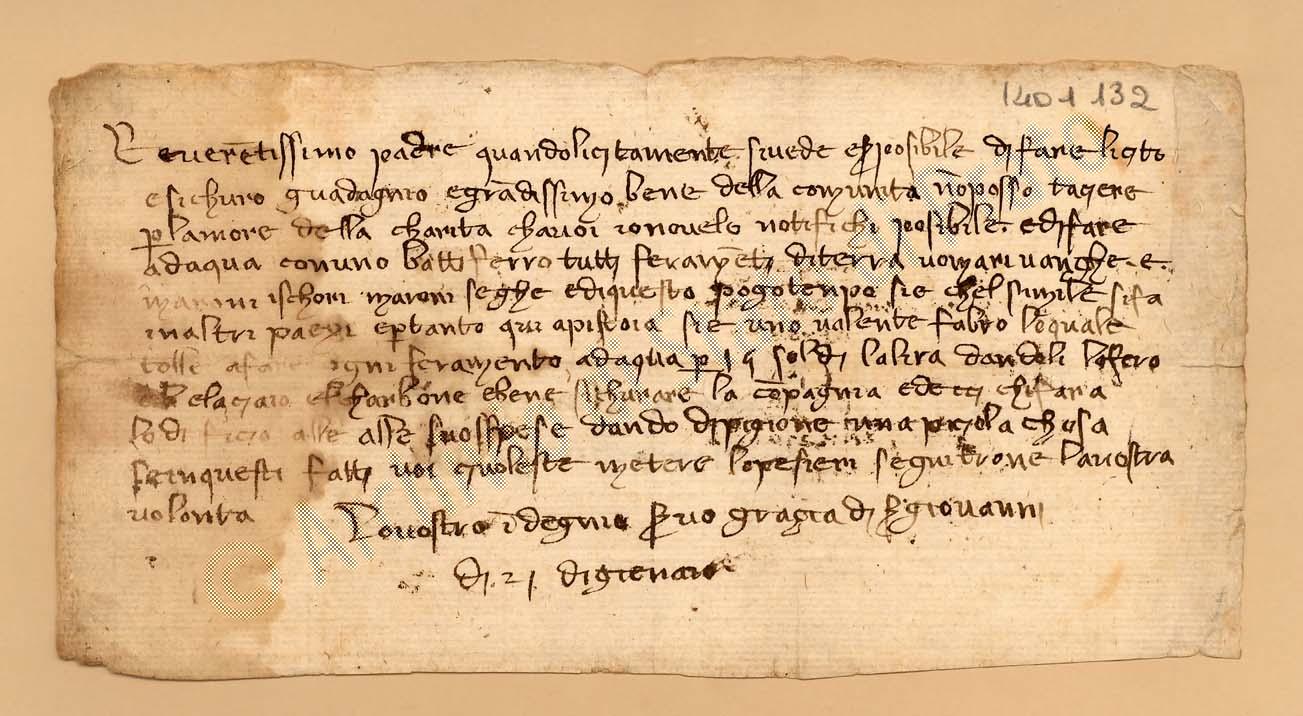 1401132
Reverētissimo padre quando licitamente si vede esposibile di fare licito
e sichuro guadagnio e grādissimo bene della comunita nōposso tacere
p lamore della charita chavoi io novelo notifichi posibile edifare
adaqua conuno battiferro tutti feramēti diterra vomari vanghe e
marroni seghe ediquesto pogotenpo sie chel simile sifa
inaltri paexi eptanto qui apistoia sie uno valente fabro loquale
tolle afare ogni feramento adaqua p soldi lalira dandoli lofero
elaciaio elcharbone ebene sichurare la cōpagnia chifara
lodificio alle suosspese dando dipigione una picola chosa
seinquesti fatti voi voleste metere seguitrone lavostra
volonta
Lovostro īdegnio servo gracia di s giovanni
di 21 digienaio